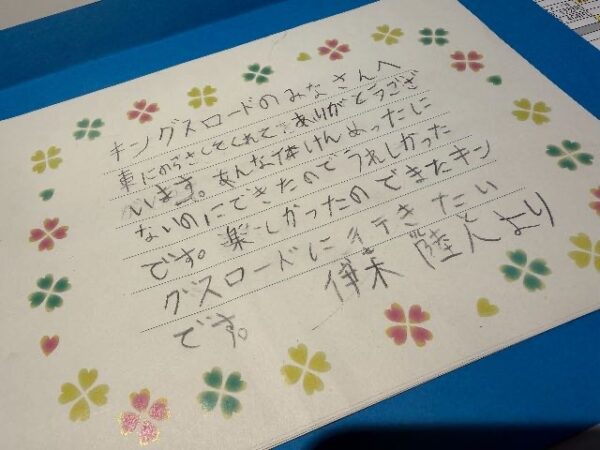 キングスロードのみなさんへ
車にのらさしてくれて、ありがとうござ
います。あんな体けんめったに
ないのにできたのでうれしかった
です。楽しかったのでまたキン
グスロードに行きたい
です。
伊末 陸人より